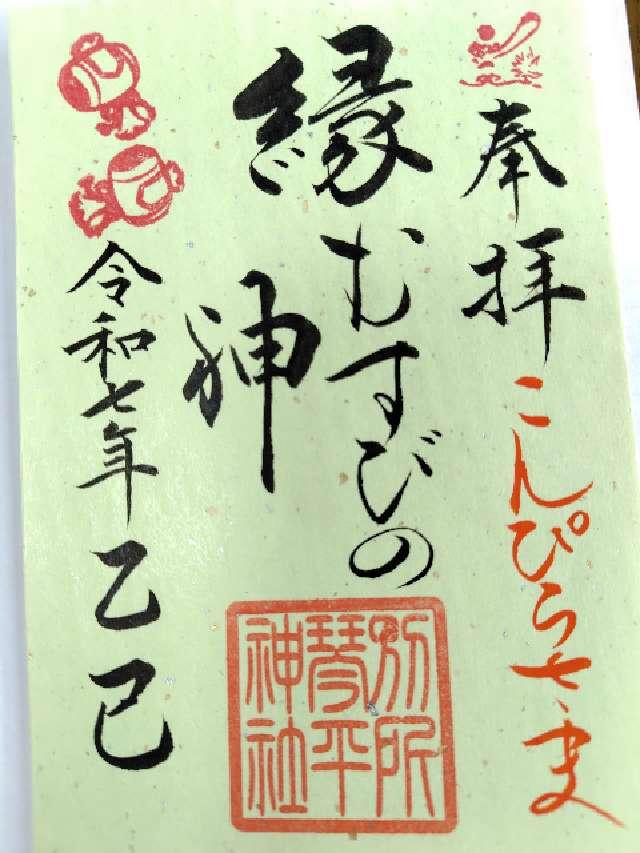 奉拝
こんぴらさま
縁むすびの
神
別所
琴平
神社
令和七年乙巳